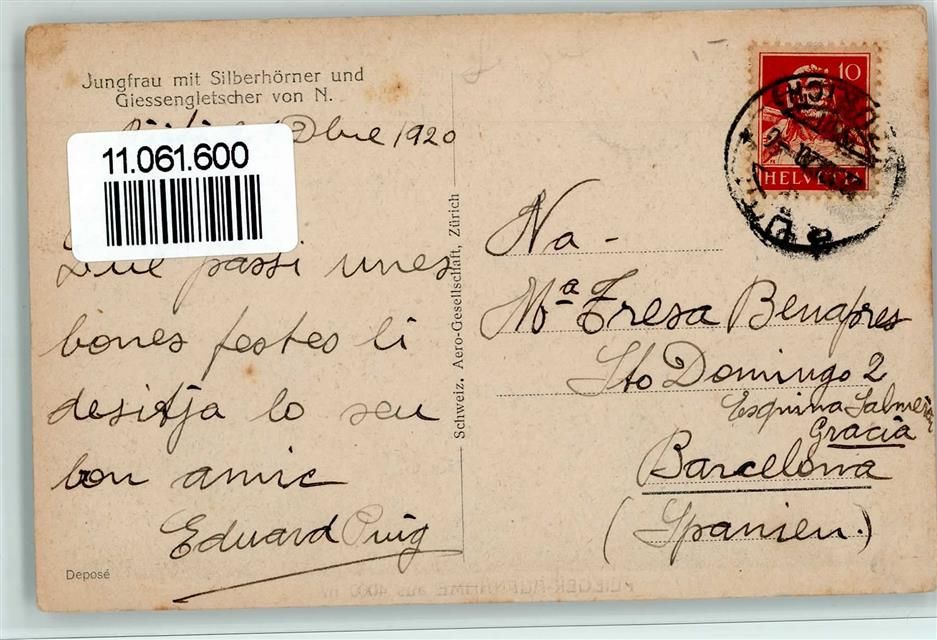 Jungfrau mit Silberhörner und
Giessengletscher von N.
Dbre 1920
11.061.600
Que passi unes
bones festes li
desitja lo seu
bon amic
Eduard Puig
Deposé
Schweiz. Aero-Gesellschaft, Zürich
10
HELVETIA
Na -
Mª Tresa Benapres
Sto Domingo 2
Esquina Salmerón
Gracia
Barcelona
(Spanien.)
FLIEGER-AUFNAHME aus 4000 m